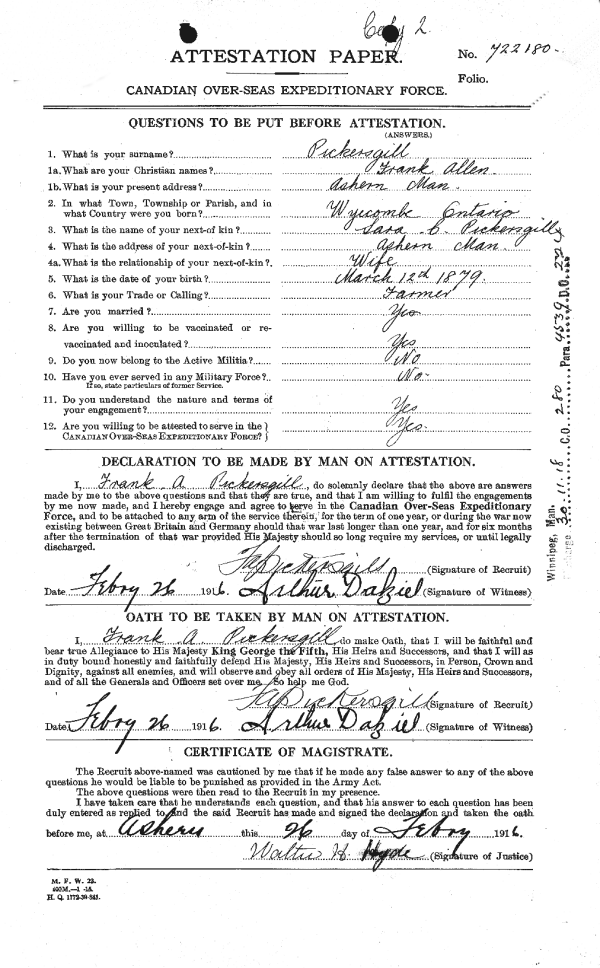 Copy 2
ATTESTATION PAPER.
No. 722180
Folio.
CANADIAN OVER-SEAS EXPEDITIONARY FORCE.
QUESTIONS TO BE PUT BEFORE ATTESTATION.
(ANSWERS.)
1. What is your surname? Pickersgill
1a. What are your Christian names? Frank Allen
1b. What is your present address? Ashern Man.
2. In what Town, Township or Parish, and in
what Country were you born? Wycombe Ontario
3. What is the name of your next-of kin? Sara C. Pickersgill
4. What is the address of your next-of-kin? Ashern Man.
4a. What is the relationship of your next-of-kin? Wife
5. What is the date of your birth? March 12th 1879.
6. What is your Trade or Calling? Farmer
7. Are you married? Yes
8. Are you willing to be vaccinated or re-
vaccinated and inoculated? Yes
9. Do you now belong to the Active Militia? No
10. Have you ever served in any Military Force? No.
If so, state particulars of former Service.
11. Do you understand the nature and terms of
your engagement? Yes
12. Are you willing to be attested to serve in the }
CANADIAN OVER-SEAS EXPEDITIONARY FORCE? } Yes.
DECLARATION TO BE MADE BY MAN ON ATTESTATION.
I, Frank A Pickersgill, do solemnly declare that the above are answers
made by me to the above questions and that they are true, and that I am willing to fulfil the engagements
by me now made, and I hereby engage and agree to serve in the Canadian Over-Seas Expeditionary
Force, and to be attached to any arm of the service therein, for the term of one year, or during the war now
existing between Great Britain and Germany should that war last longer than one year, and for six months
after the termination of that war provided His Majesty should so require my services, or until legally
discharged.
F A Pickersgill (Signature of Recruit)
Date Febry 26 1916. Arthur Dalziel (Signature of Witness)
OATH TO BE TAKEN BY MAN ON ATTESTATION.
I, Frank A Pickersgill do make Oath, that I will be faithful and
bear true Allegiance to His Majesty King George the Fifth, His Heirs and Successors, and that I will as
in duty bound honestly and faithfully defend His Majesty, His Heirs and Successors, in Person, Crown and
Dignity, against all enemies, and will observe and obey all orders of His Majesty, His Heirs and Successors,
and of all the Generals and Officers set over me. So help me God.
F A Pickersgill (Signature of Recruit)
Date Febry 26 1916. Arthur Dalziel (Signature of Witness)
CERTIFICATE OF MAGISTRATE.
The Recruit above-named was cautioned by me that if he made any false answer to any of the above
questions he would be liable to be punished as provided in the Army Act.
The above questions were then read to the Recruit in my presence.
I have taken care that he understands each question, and that his answer to each question has been
duly entered as replied to, and the said Recruit has made and signed the declaration and taken the oath
before me, at Ashern this 26 day of Febry 1916.
Walter H. Hyde (Signature of Justice)
M. F. W. 23.
H. Q. 1772-39-845.
Winnipeg, Man.
30.11.18 C.O. 280 Para 4539 D.O.